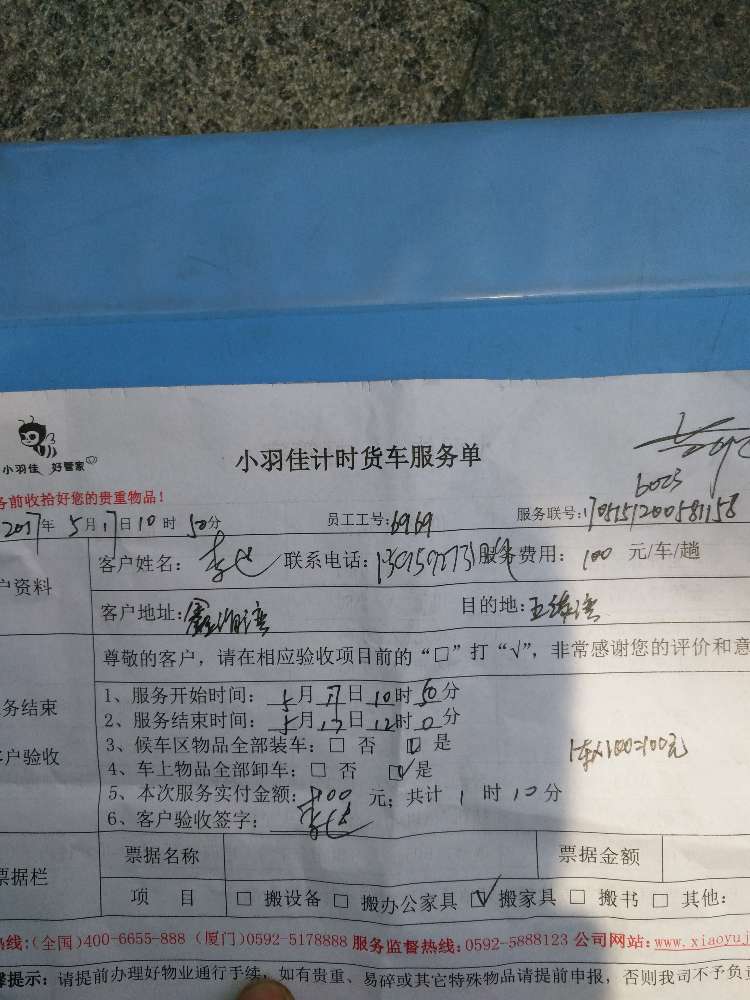 小羽佳 好管家
小羽佳计时货车服务单
务前收拾好您的贵重物品！
6023
2017年5月17日10时50分 员工工号：6969 服务联号：1705151200581158
户资料
客户姓名： 联系电话： 服务费用：100 元/车/趟
客户地址： 目的地：五缘湾
尊敬的客户，请在相应验收项目前的“□”打“√”，非常感谢您的评价和意
务结束
户验收
1、服务开始时间：5月17日10时50分
2、服务结束时间：5月17日12时0分
3、候车区物品全部装车：□ 否 ☑ 是
4、车上物品全部卸车：□ 否 ☑是
5、本次服务实付金额：100 元；共计 1 时 10 分
6、客户验收签字：
1车x100=100元
票据栏
票据名称 票据金额
项 目 □ 搬设备 □ 搬办公家具 ☑ 搬家具 □ 搬书 □ 其他：
热线：(全国)400-6655-888 (厦门)0592-5178888 服务监督热线：0592-5888123 公司网站：www.xiaoyuj
馨提示：请提前办理好物业通行手续，如有贵重、易碎或其它特殊物品请提前申报，否则我司不予负责